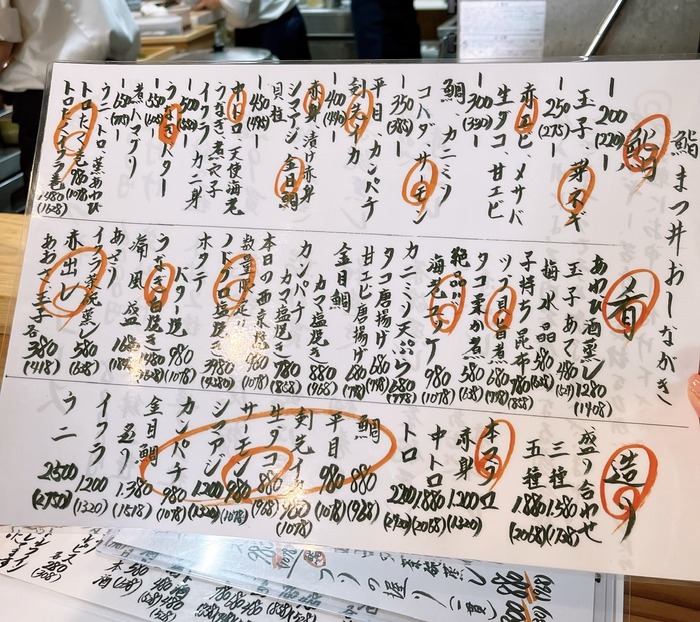 鮨まつ井おしながき
鮨
一200(220)一
玉子、芽ネギ
一250(275)一
赤エビ、〆サバ
生ダコ 甘エビ
一300(330)一
鯛、カニミソ
コハダ、サーモン
一350(385)一
平目 カンパチ
剣先イカ
一400(440)一
赤身 漬け赤身
シマアジ 金目鯛
貝柱
一450(495)一
中トロ 天使海老
イクラ カニ身
うなぎ 煮穴子
一500(550)一
うなぎバター
煮ハマグリ
トロたく巻 980(1078)
肴
あわび酒蒸し 1280(1408)
玉子あて 480
梅水晶 580(638)
子持ち昆布 780(858)
ツブ貝旨煮 680
タコ柔か煮 580(638)
絶品!!
海老ユッケ 980(1078)
カニミソ天ぷら 680
タコ唐揚げ 680
甘エビ唐揚げ 680
金目鯛
カマ塩焼き 880(968)
カンパチ
カマ塩焼き 780(858)
本日の西京焼 980(1078)
数量限定!!
ノドグロ塩焼 3980
ホタテ
バター焼 980(1078)
うなぎ白焼き 1480
イクラ茶碗蒸し 580(638)
赤出し
あおさ、玉子各 380(418)
造り
盛り合わせ
三種 1580(1738)
五種 1880(2068)
本マグロ
赤身 1200(1320)
中トロ 1880(2068)
トロ 2200(2420)
鯛 880(968)
平目 980(1078)
剣先イカ 980(1078)
生タコ 880(968)
サーモン 980(1078)
シマアジ 1200(1320)
カンパチ 980(1078)
金目鯛 1380(1518)
イクラ 1200(1320)
ウニ 2500(2750)